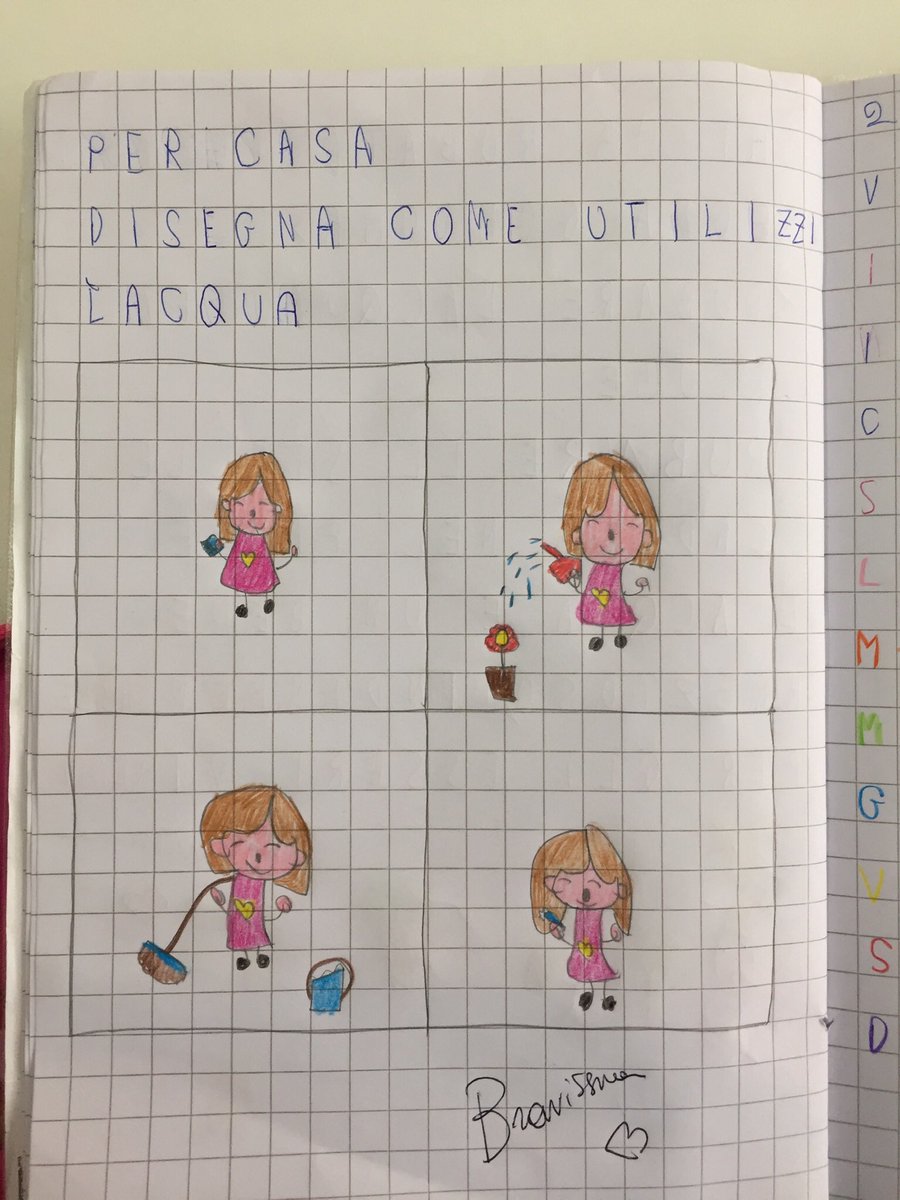 PER CASA
DISEGNA COME UTILIZZI
L'ACQUA
Bravissima
2
V
I
I
C
S
L
M
M
G
V
S
D